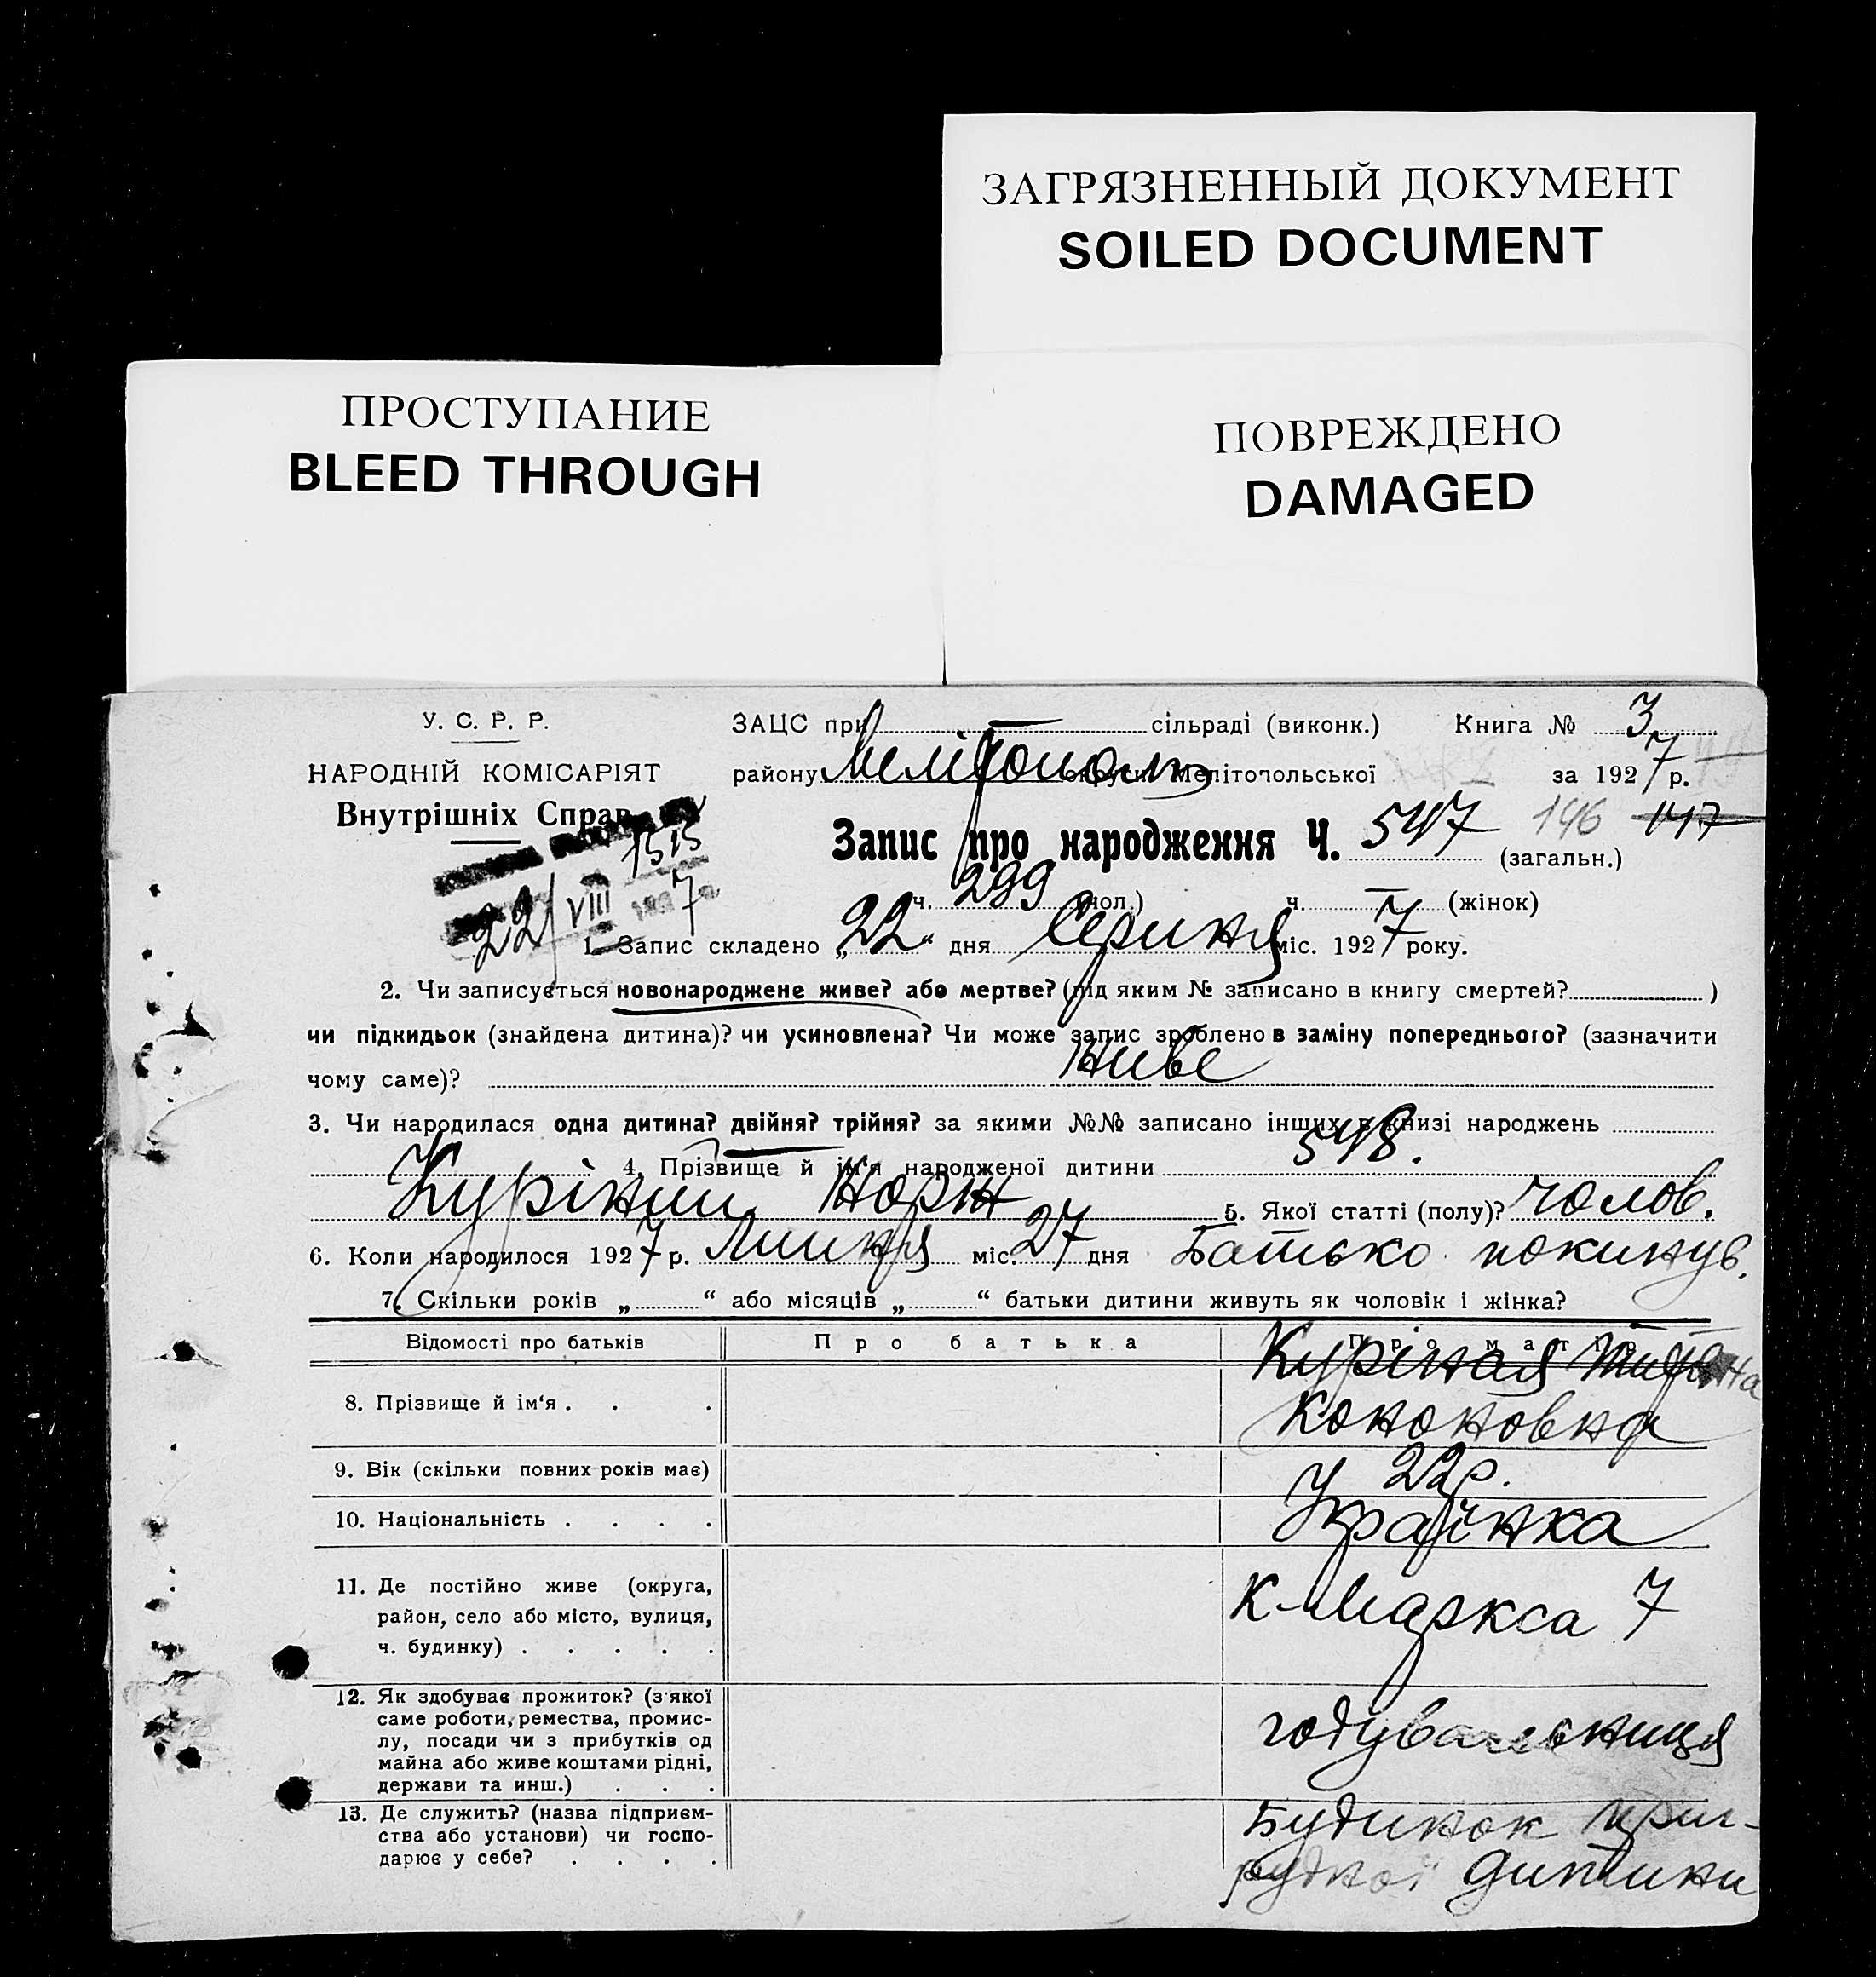 ЗАГРЯЗНЕННЫЙ ДОКУМЕНТ
SOILED DOCUMENT
ПРОСТУПАНИЕ
BLEED THROUGH
ПОВРЕЖДЕНО
DAMAGED
У. С. Р. Р.
НАРОДНІЙ КОМІСАРІЯТ
Внутрішніх Справ
1515
22/VIII 1927
ЗАЦС при — сільраді (виконк.) Книга № 3
району Мелітополь округи Мелітопольської за 1927 р.
Запис про народження Ч. 547 146 147
(загальн.)
ч. 299 (чол.) ч. — (жінок)
1. Запис складено „22“ дня Серпня міс. 1927 року.
2. Чи записується новонароджене живе? або мертве? (під яким № записано в книгу смертей? )
чи підкидьок (знайдена дитина)? чи усиновлена? Чи може запис зроблено в заміну попереднього? (зазначити
чому саме)? живе
3. Чи народилася одна дитина? двійня? трійня? за якими №№ записано інших в книзі народжень
548.
4. Прізвище й ім‘я народженої дитини
Курінний Жорж 5. Якої статті (полу)? чолов.
6. Коли народилося 1927 р. Липня міс. 27 дня Батько покинув.
7. Скільки років „ “ або місяців „ “ батьки дитини живуть як чоловік і жінка?
Відомості про батьків Про батька Про матір
8. Прізвище й ім‘я . . . Куріная
Кононовна
9. Вік (скільки повних років має) 22 р.
10. Національність . . . . Українка
11. Де постійно живе (округа,
район, село або місто, вулиця,
ч. будинку) . . . . .
К-Маркса 7
12. Як здобуває прожиток? (з‘якої
саме роботи, ремества, промис-
лу, посади чи з прибутків од
майна або живе коштами рідні,
держави та инш.) . . .
годувальниця
13. Де служить? (назва підприєм-
ства або установи) чи госпо-
дарює у себе? . . . .
Будинок приг-
рудної дитини